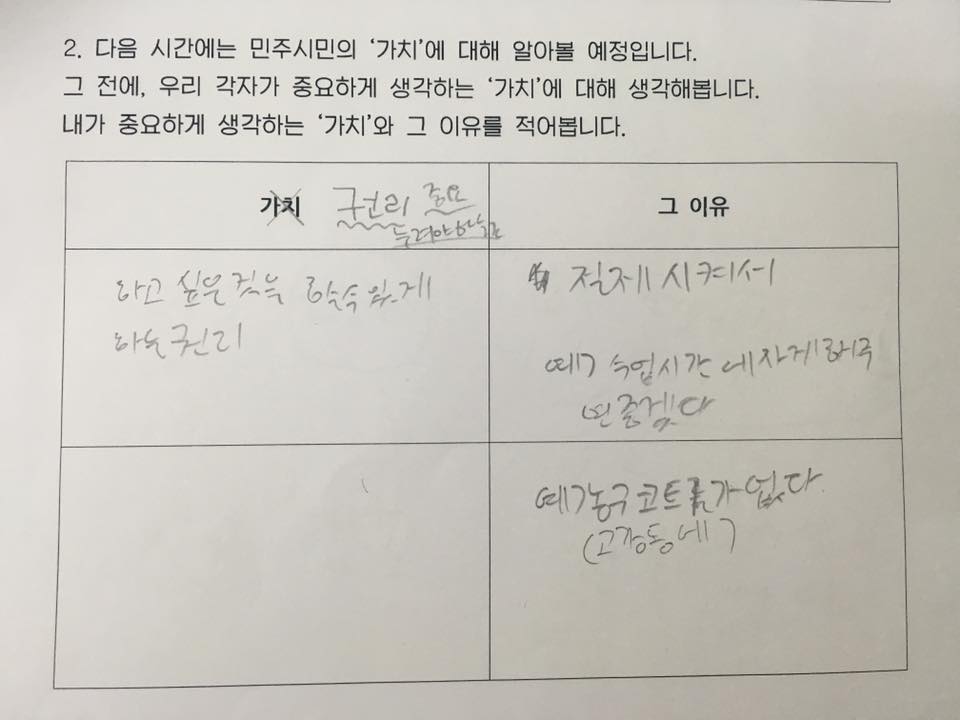 2. 다음 시간에는 민주시민의 '가치'에 대해 알아볼 예정입니다.
그 전에, 우리 각자가 중요하게 생각하는 '가치'에 대해 생각해봅니다.
내가 중요하게 생각하는 '가치'와 그 이유를 적어봅니다.
가치 권리 중요
그 이유
하고 싶은것을 할수있게
하는권리
질제시켜서
예) 수업시간에자게해주
면좋겠다
예)농구코트가없다
(고강동에)